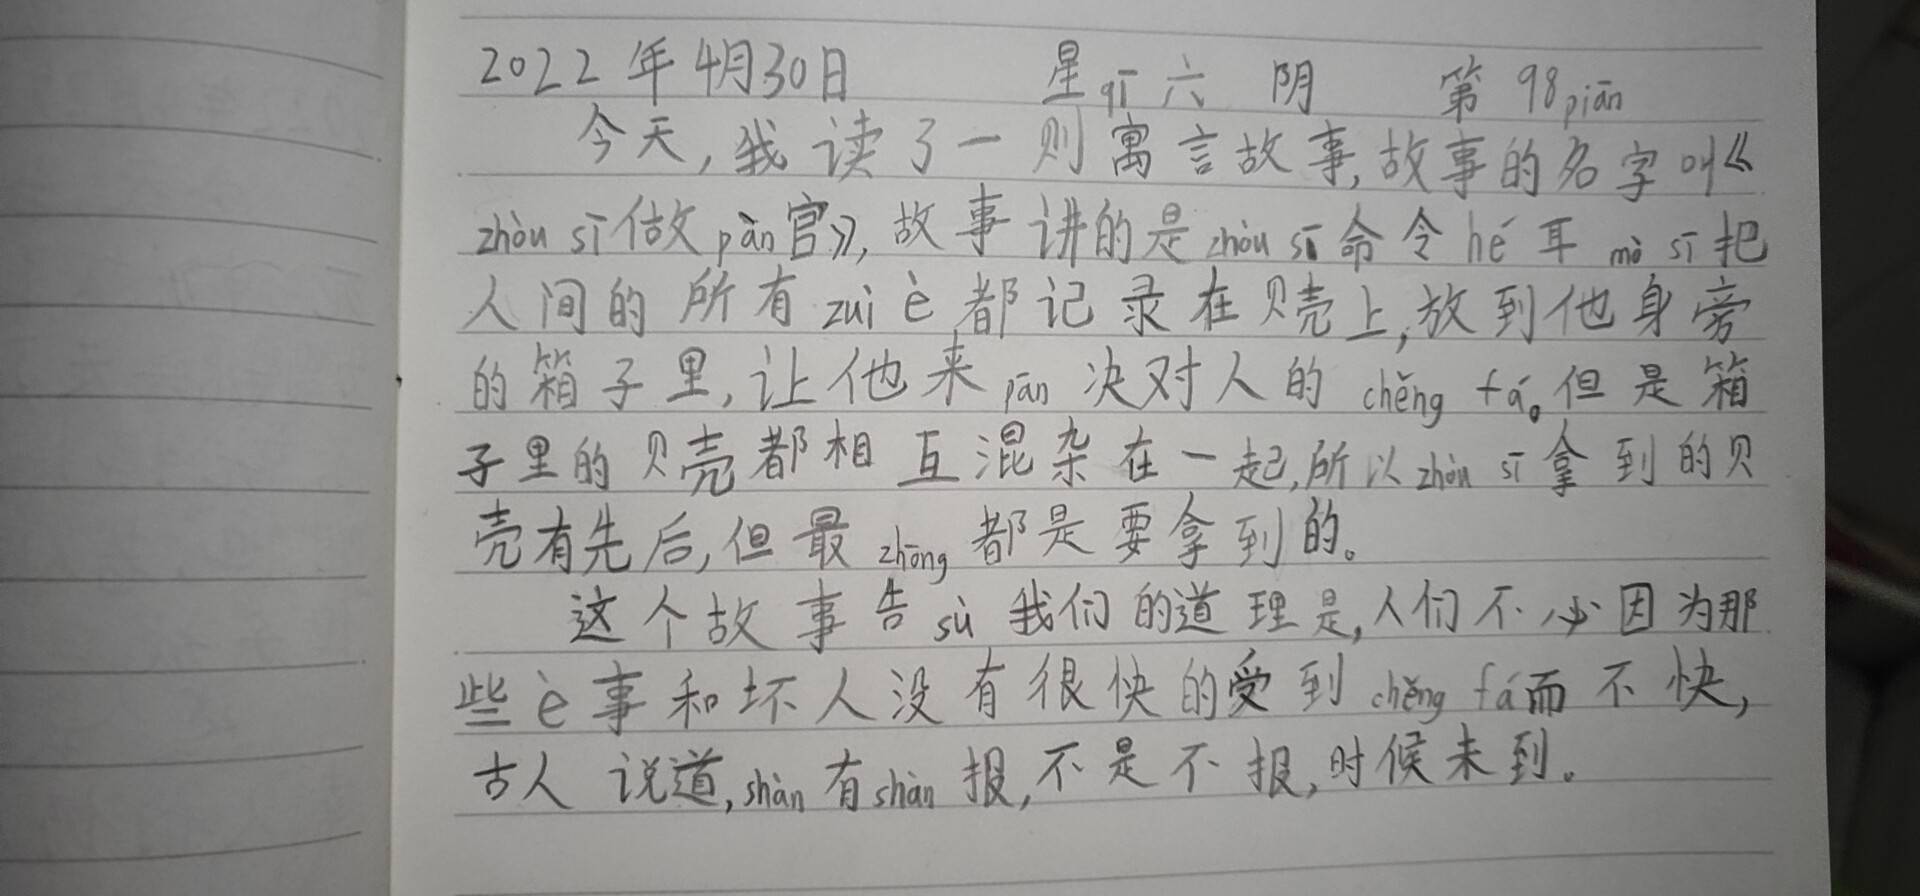 2022年4月30日 星qī六 阴 第98piān
今天,我读了一则寓言故事,故事的名字叫《
zhòu sī做pàn官》,故事讲的是zhòu sī命令hé耳mò sī把
人间的所有zuì è都记录在贝壳上,放到他身旁
的箱子里,让他来pān决对人的chěng fá。但是箱
子里的贝壳都相互混杂在一起,所以zhòu sī拿到的贝
壳有先后,但最zhōng都是要拿到的。
这个故事告sù我们的道理是,人们不必因为那
些è事和坏人没有很快的受到chěng fá而不快,
古人说道,shàn有shàn报,不是不报,时候未到。